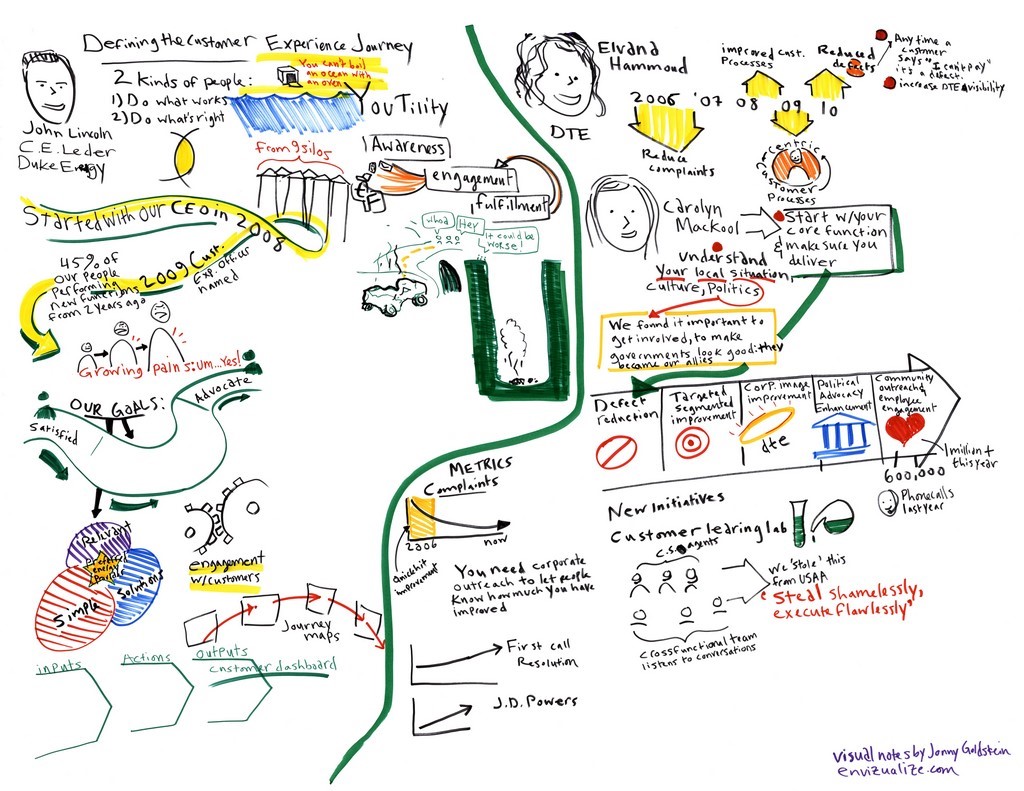 Defining the Customer Experience Journey
John Lincoln
C.E. Leder
Duke Energy
2 Kinds of people:
1) Do what works
2) Do what's right
You can't boil
an ocean with
an oven
YouTility
From 9 silos
Awareness
engagement
fulfillment
Started with our CEO in 2008
2009 Cust.
exp. officer
named
45% of
our people
performing
new functions
from 2 years ago
whoa
Hey
it could be
worse!
Growing pains:um...Yes!
OUR GOALS:
Satisfied
Advocate
Relevant
Preferred
energy
Provider
Simple
Solutions
engagement
w/customers
Journey
maps
inputs
Actions
outputs
Customer dashboard
METRICS
Complaints
2006
now
improvement
You need corporate
outreach to let people
Know how much you have
improved
First call
Resolution
J.D. Powers
Elvana
Hammoud
DTE
2006 '07 08 09 10
improved cust.
Processes
Reduced
defects
Any time a
customer
says "I can't pay"
it's a defect.
increase DTE visibility
Reduce
complaints
centric
customer
Processes
Carolyn
Mackool
Start w/your
core function
& make sure you
deliver
understand
Your local situation,
culture, Politics
We found it important to
get involved, to make
governments look good: they
became our allies
Defect
reduction
Targeted
segmented
improvement
Corp. image
improvement
dte
Political
Advocacy
Enhancement
Community
outreach,
employee
engagement
1 million +
this year
600,000
Phone calls
last year
New Initiatives
Customer learing lab
C.S. agents
we 'stole' this
from USAA
"Steal shamelessly,
execute flawlessly"
crossfunctional team
listens to conversations
visual notes by Jonny Goldstein
envizualize.com